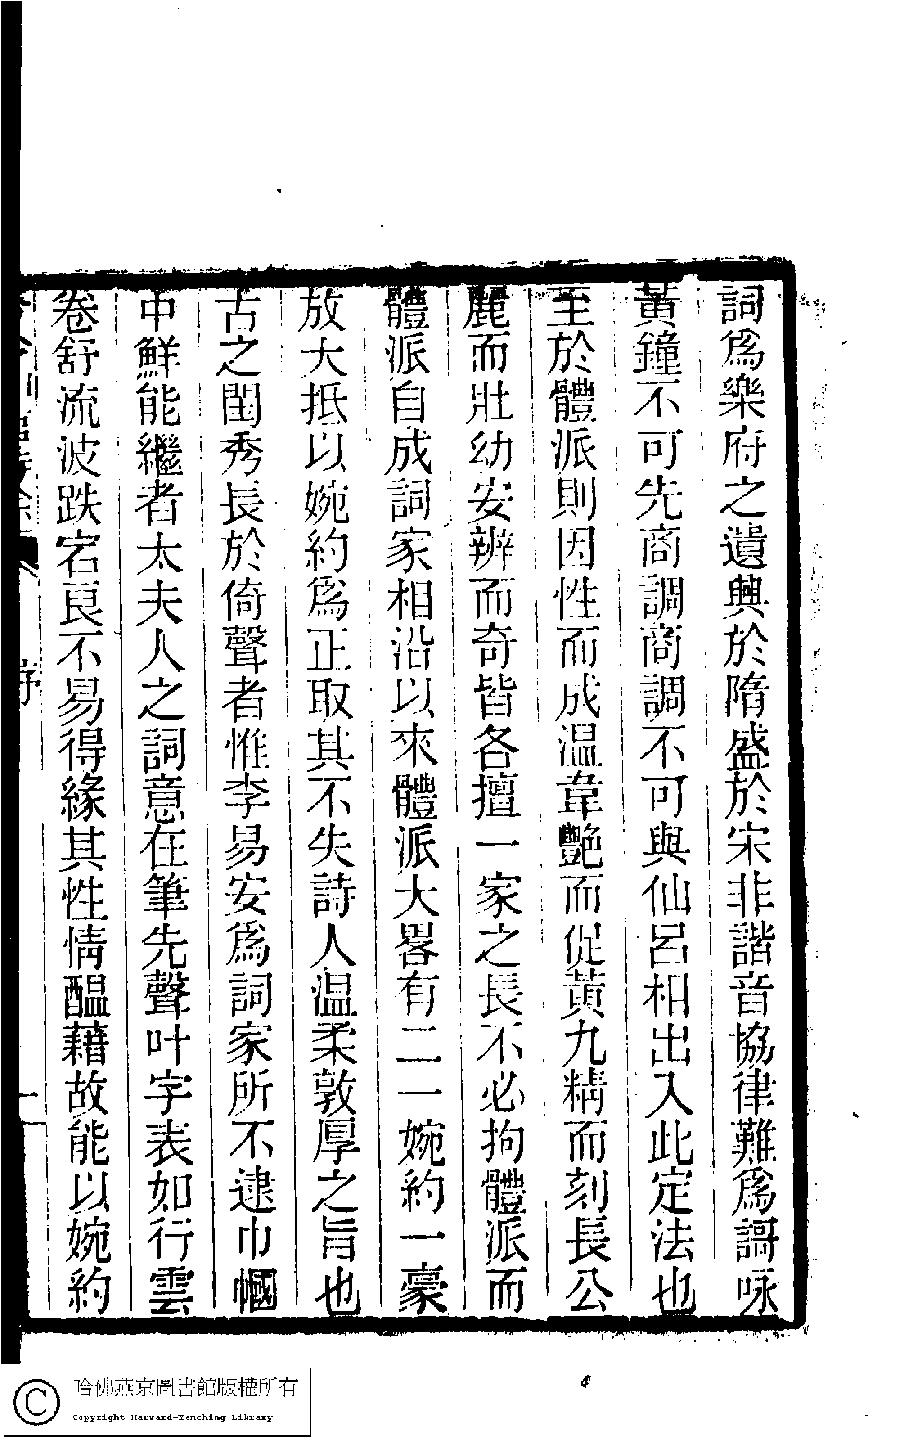 詞爲樂府之遺興於隋盛於宋非諧音協律難爲謌咏
黃鐘不可先商調商調不可與仙呂相出入此定法也
至於體派則因性而成温韋艶而促黃九精而刻長公
麗而壯幼安辨而奇皆各擅一家之長不必拘體派而
體派自成詞家相沿以來體派大畧有二一婉約一豪
放大抵以婉約爲正取其不失詩人温柔敦厚之旨也
古之閨秀長於倚聲者惟李易安爲詞家所不逮巾幗
中鮮能繼者太夫人之詞意在筆先聲叶字表如行雲
卷舒流波跌宕良不易得緣其性情醞藉故能以婉約
序
一
哈佛燕京圖書館版權所有
Copyright Harvard-Yenching Library